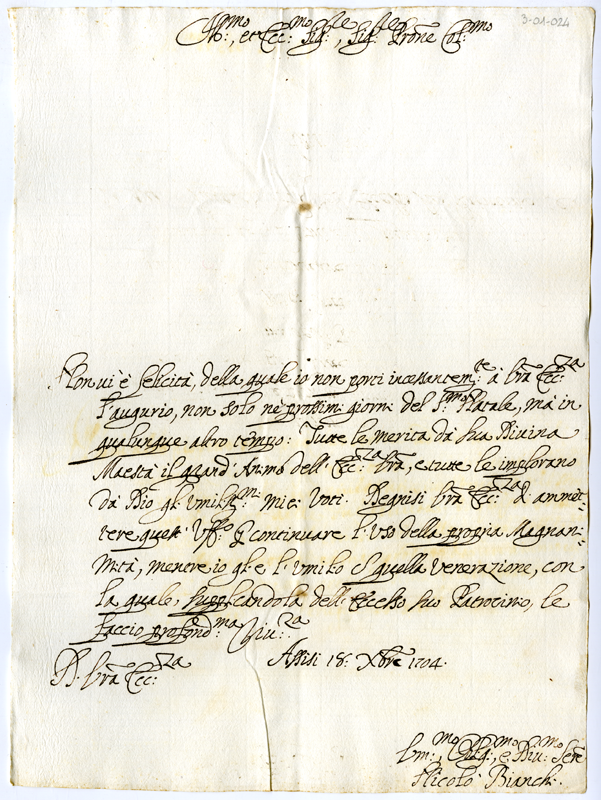 3-01-024
Ill:mo, et Ecc:mo Sig:re, Sig:re Prõne Col:mo
Non ui è felicità, della quale io non porti incessantem:te à Vrã Ecc:za
l'augurio, non solo nè prossimi giorni del S:mo Natale, mà in
qualunque altro tempo: Tutte le merita dà Sua Diuina
Maestà il grand'Animo dell'Ecc:za Vrã, e tutte le implorano
dà Dio gl'umiliss:mi miei Voti. Degnisi Vrã Ecc:za d'ammet-
tere quest'Uff:o continuare l'uso della propria Magnani-
mità, mentre io gl'e l'umilio quella venerazione, con
la quale, supplicandola dell'Eccelso suo Patrocinio, le
faccio profond:ma Riu:za
D. Vrã Ecc:za Assisi 18: Xbre 1704.
Vm:mo, Obllig:mo, e Diu:mo Sere
Nicolò Bianchi.